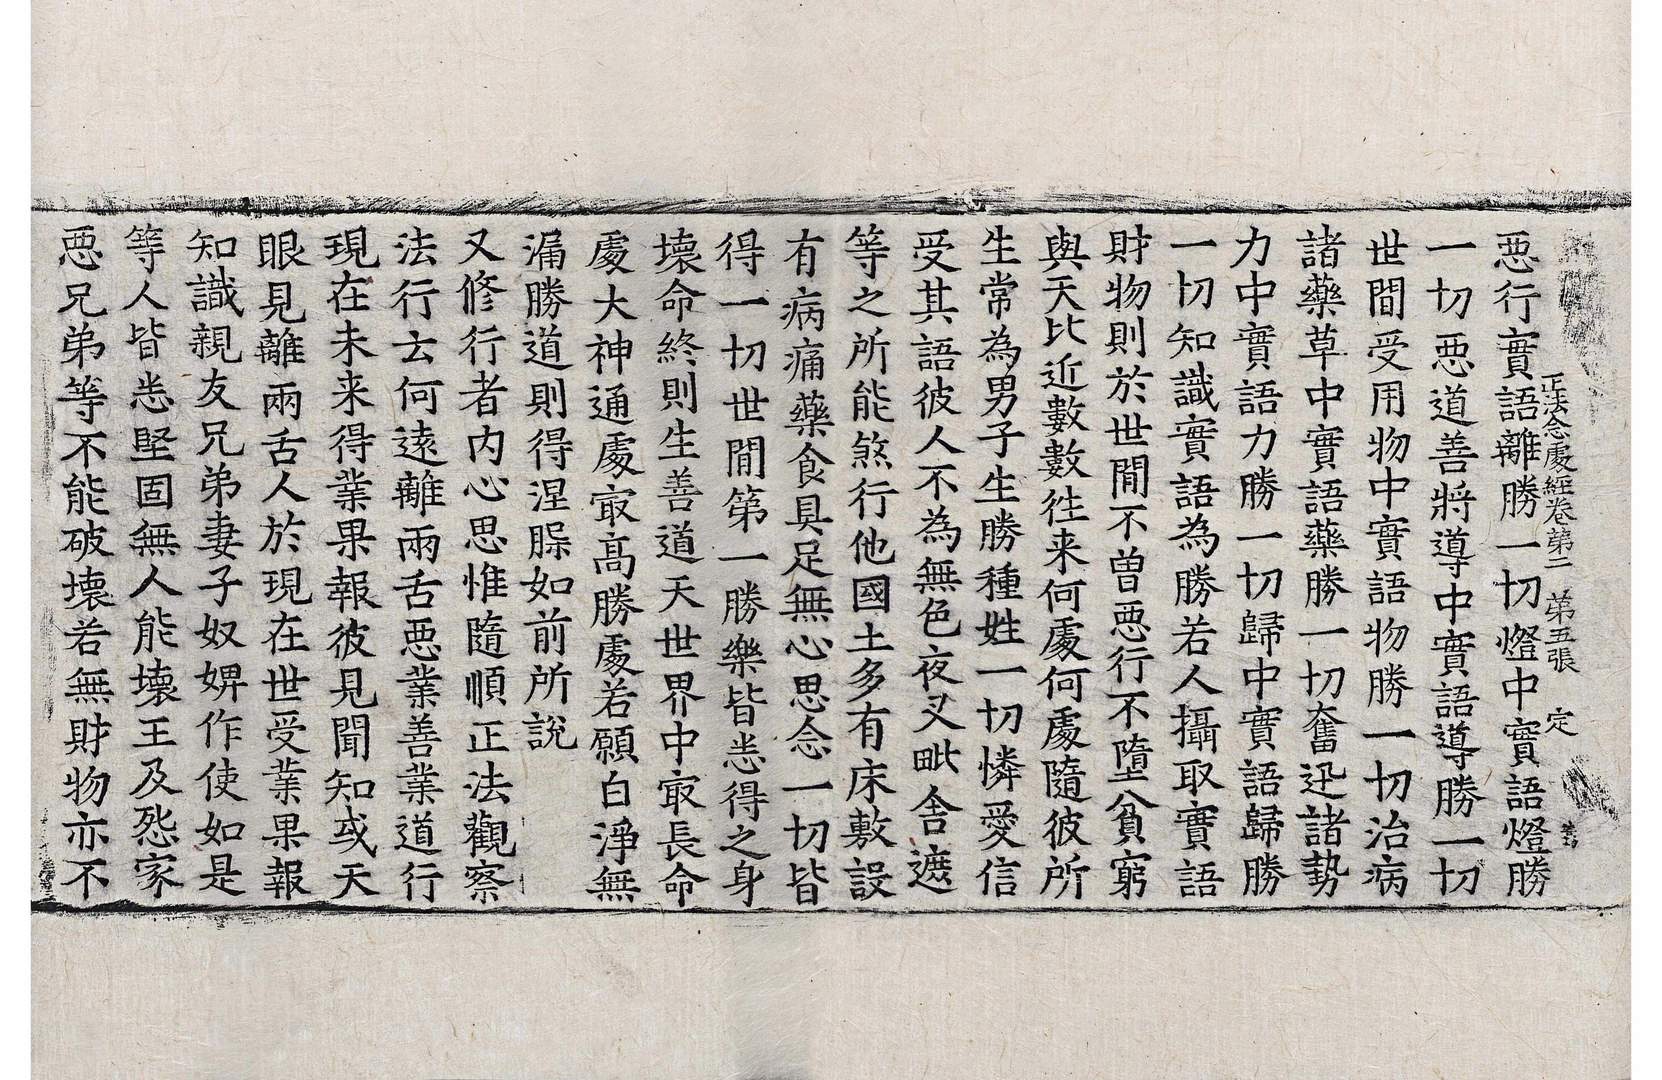 正法念處經卷第二　第五張　定
惡行實語離勝一切燈中實語燈勝
一切惡道善將導中實語導勝一切
世間受用物中實語物勝一切治病
諸藥草中實語藥勝一切奮迅諸勢
力中實語力勝一切歸中實語歸勝
一切知識實語為勝若人攝取實語
財物則於世間不曾惡行不墮貧窮
與天比近數數往来何處何處隨彼所
生常為男子生勝種姓一切憐愛信
受其語彼人不為無色夜叉毗舍遮
等之所能煞行他國土多有床敷設
有病痛藥食具足無心思念一切皆
得一切世間第一勝樂皆悉得之身
壞命終則生善道天世界中㝡長命
處大神通處㝡髙勝處若願白淨無
漏勝道則得涅槃如前所說
又修行者內心思惟隨順正法觀察
法行云何遠離兩舌惡業善業道行
現在未来得業果報彼見聞知或天
眼見離兩舌人於現在世受業果報
知識親友兄弟妻子奴婢作使如是
等人皆悉堅固無人能壞王及怨家
惡兄弟等不能破壞若無財物亦不